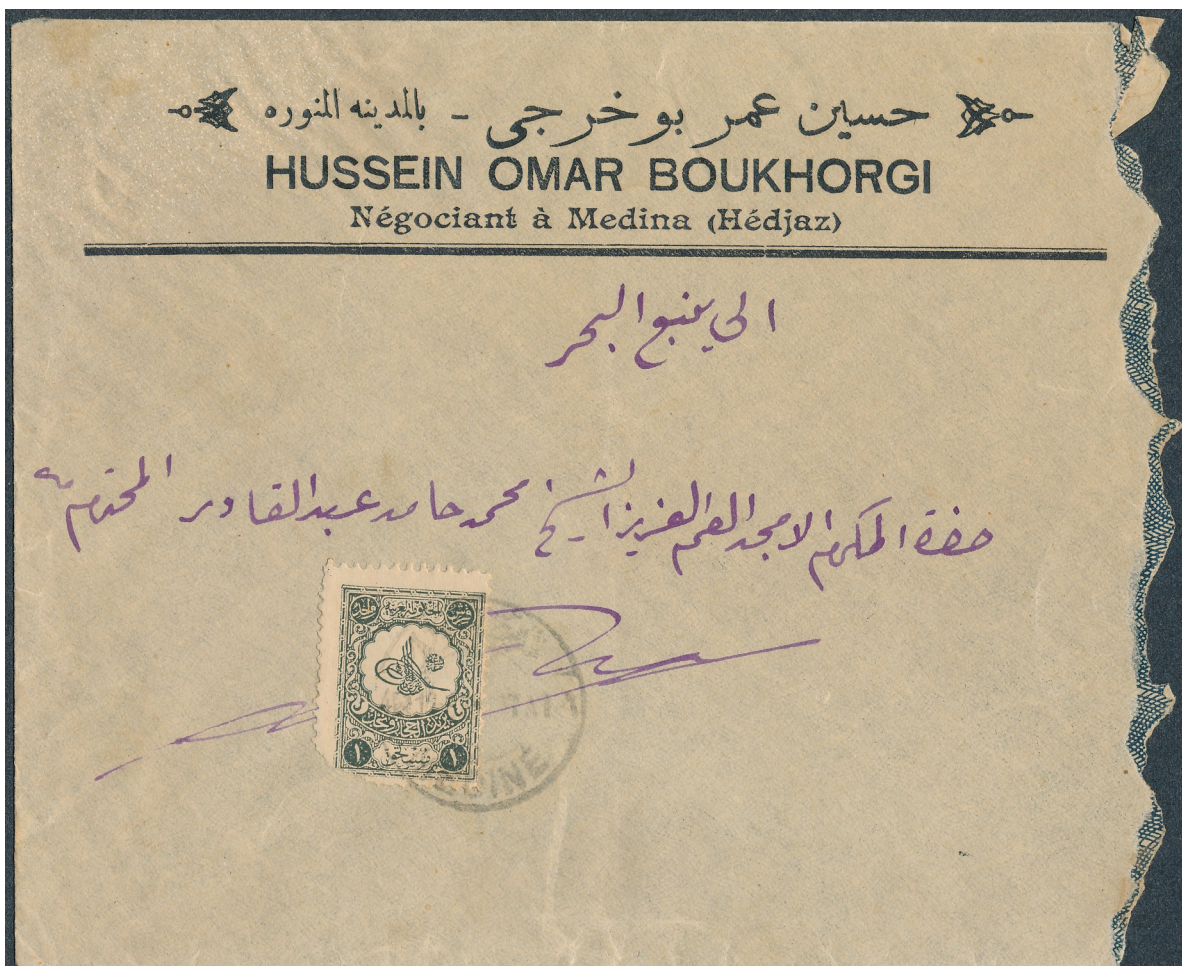 حسين عمر بوخرجى - بالمدينه المنوره
HUSSEIN OMAR BOUKHORGI
Négociant à Medina (Hédjaz)
الى ينبع البحر
حضرة المكرم الامجد الفم العزيز الشيخ محمد حامد عبدالقادر المحترم
قرش واحد
مستحق
١ ١